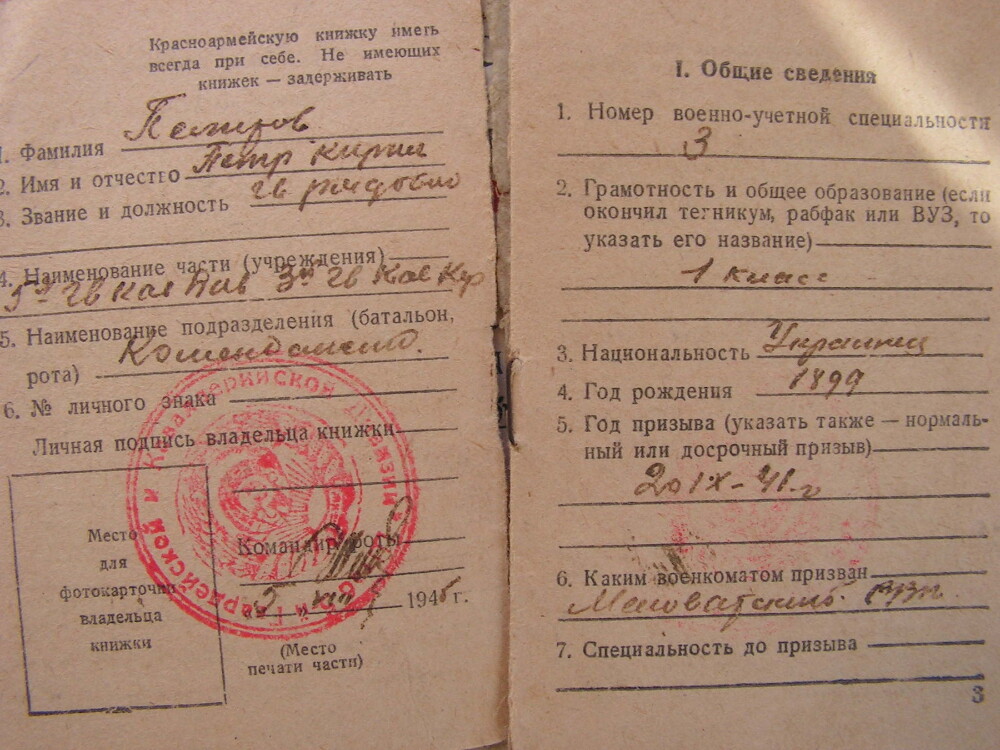 Красноармейскую книжку иметь
всегда при себе. Не имеющих
книжек — задерживать
1. Фамилия
2. Имя и отчество Петр Кирил
3. Звание и должность гв рядовой
4. Наименование части (учреждения)
5й гв кав див 3й гв Кав Кор
5. Наименование подразделения (батальон,
рота) Комендант.
6. № личного знака
Личная подпись владельца книжки
Место
для
фотокарточки
владельца
книжки
Командир роты
5 194 г.
(Место
печати части)
Гвардейской Кавалерийской Дивизии
I. Общие сведения
1. Номер военно-учетной специальности
3
2. Грамотность и общее образование (если
окончил техникум, рабфак или ВУЗ, то
указать его название)
1 класс
3. Национальность Украинец
4. Год рождения 1899
5. Год призыва (указать также — нормаль-
ный или досрочный призыв)
20 IX-41 г
6. Каким военкоматом призван
РВК
7. Специальность до призыва
3